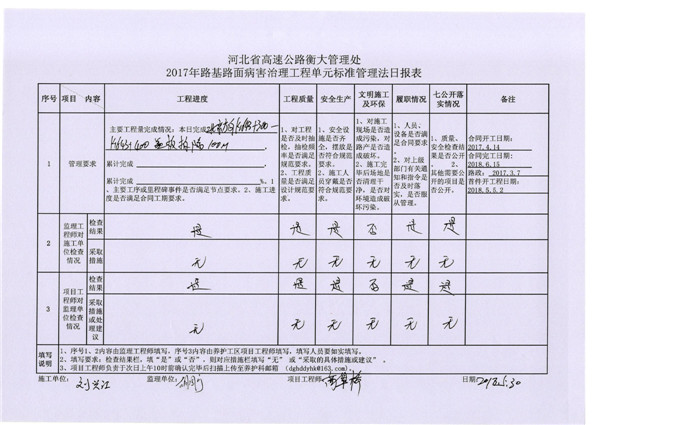 河北省高速公路衡大管理处
2017年路基路面病害治理工程单元标准管理法日报表
序号 项目 内容 工程进度 工程质量 安全生产 文明施工及环保 履职情况 七公开落实情况 备注
1 管理要求
主要工程量完成情况：本日完成
累计完成
累计完成 %。1
、主要工序或里程碑事件是否满足节点要求。2、施工进
度是否满足合同工期要求。
1、对工程
是否及时抽
检，抽检频
率是否满足
规范要求。
2、工程质
量是否满足
设计规范要
求。
1、安全设
施是否齐
全，摆放是
否符合规范
要求。
2、施工人
员穿戴是否
符合规范要
求。
1、对施工
现场是否造
成污染，对
路产是否造
成破坏。
2、施工完
毕后场地是
否清理干
净，是否对
环境造成破
坏污染。
1、人员、
设备是否满
足合同要求
。
2、对上级
部门有关通
知和指令是
否及时落
实，是否服
从管理。
1、质量、
安全检查结
果是否公开
。
2、
其他需要公
开的项目是
否公开。
合同开工日期：
2017.4.14
合同完工日期：
2018.6.15
路政：2017.3.7
首件开工日期：
2018.5.5.2
2 监理工程师对施工单位检查情况
检查结果 是 是 是 否 是 是
采取措施 无 无 无 无 无 无
3 项目工程师对监理单位检查情况
检查结果 是 是 是 否 是 是
采取措施或处理建议 无 无 无 无 无 无
填写说明
1、序号1、2内容由监理工程师填写，序号3内容由养护工区项目工程师填写，填写人员要如实填写。
2、填写要求：检查结果栏，填“是”或“否”，则对应措施栏填写“无”或“采取的具体措施或建议”。
3、项目工程师负责于次日上午10时前确认完毕后扫描上传至养护科邮箱（dghddyhk@163.com）。
施工单位： 监理单位： 项目工程师： 日期：2018.5.30